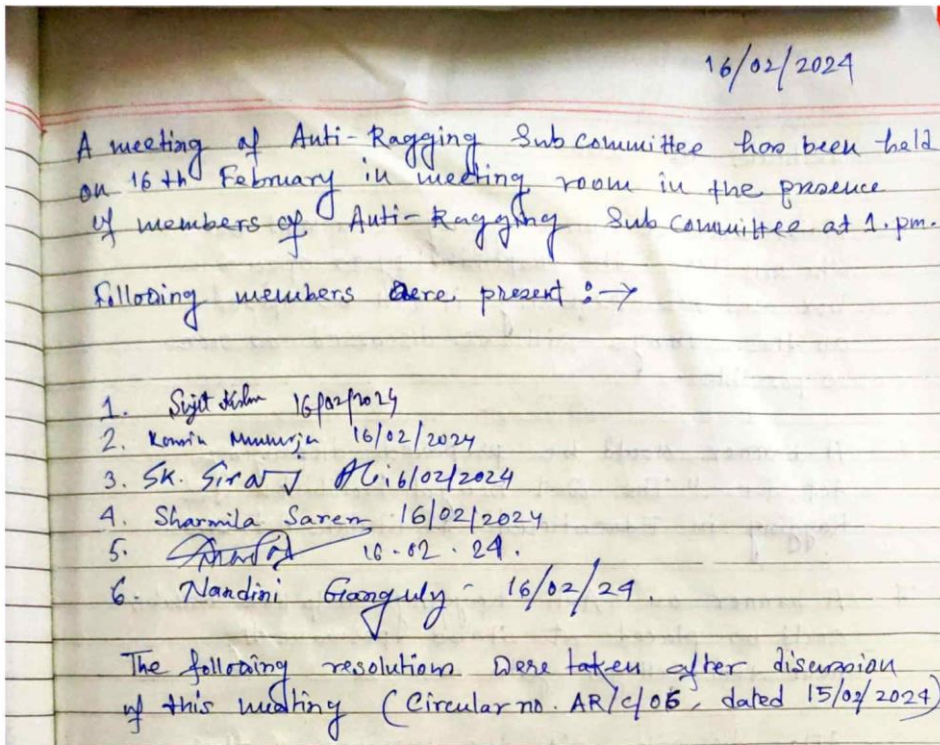 16/02/2024
A meeting of Anti-Ragging Subcommittee has been held
on 16th February in meeting room in the presence
of members of Anti-Ragging Subcommittee at 1.pm.
Following members were present :→
1. Sujit 16/02/2024
2. 16/02/2024
3. SK. Siraj Ali 16/02/2024
4. Sharmila Saren 16/02/2024
5. 16.02.24.
6. Nandini Ganguly - 16/02/24.
The following resolution were taken after discussion
of this meeting (Circular no. AR/C/06, dated 15/02/2024)